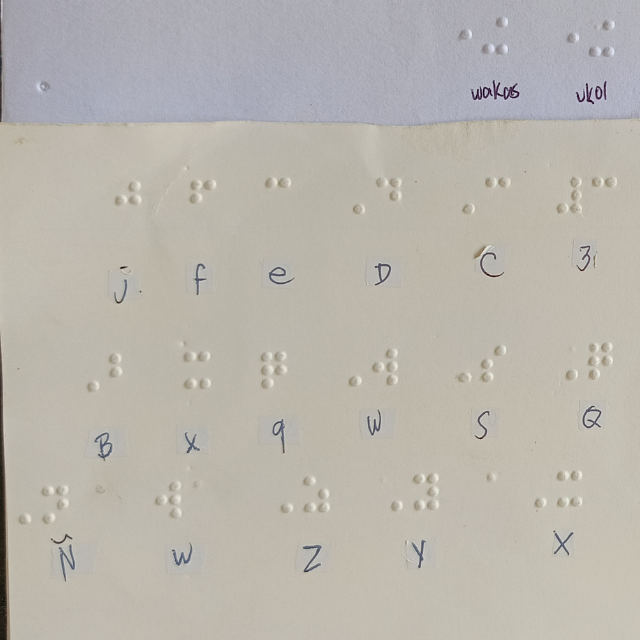 wakas ukol
j. f e D C 3i
B x q W S Q
Ñ w Z Y X